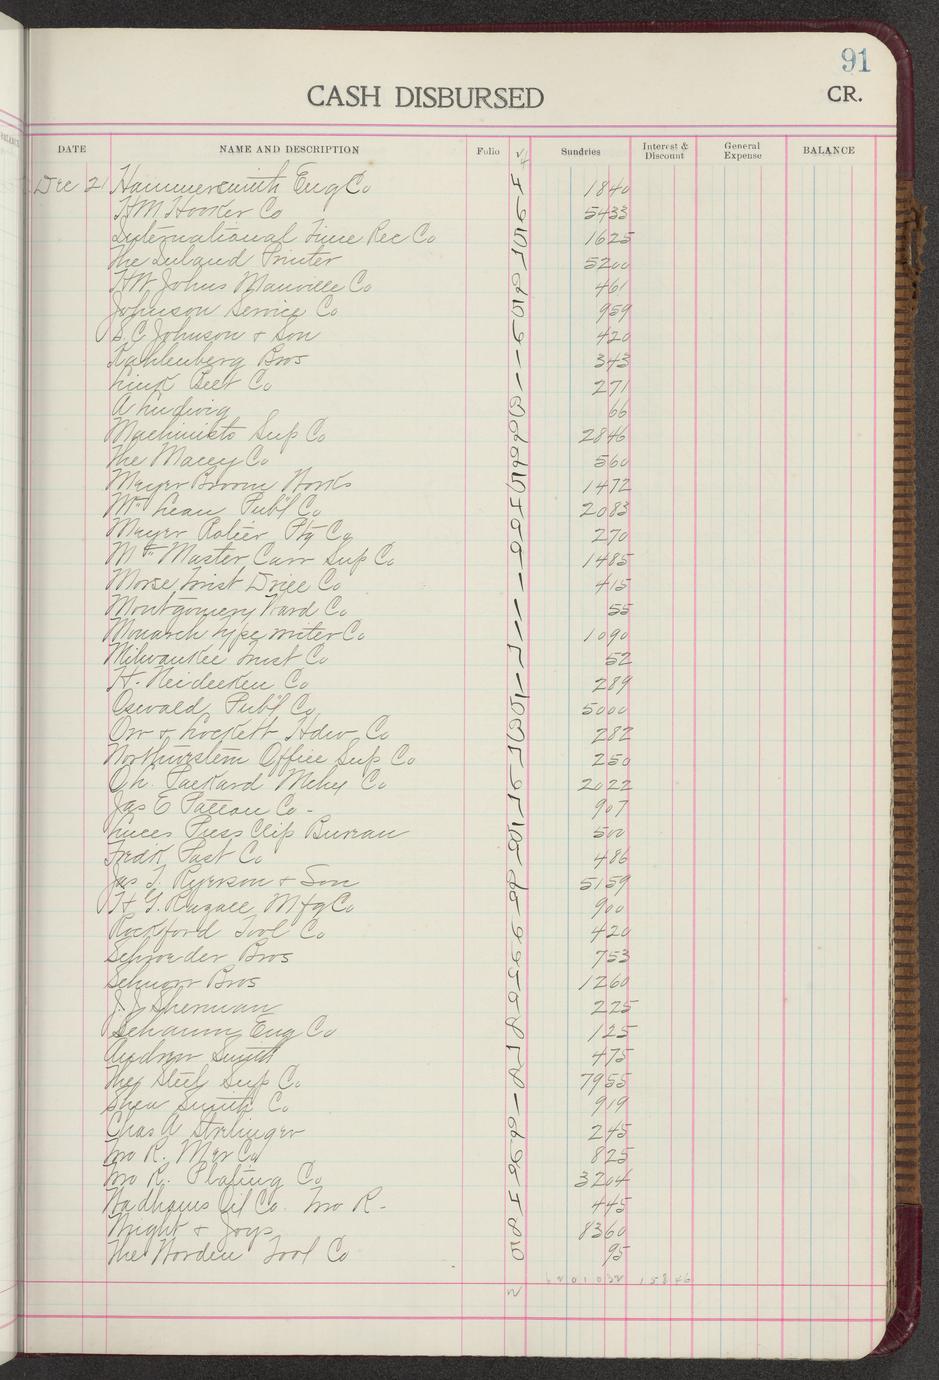 91
CASH DISBURSED
CR.
DATE NAME AND DESCRIPTION Folio Sundries Interest & Discount General Expense BALANCE
Dec 21 Hammersmith Eng Co 1840
H M Hooker Co 5433
International Time Rec Co 1625
The Inland Printer 5200
H W Johns Manville Co 461
Johnson Service Co 959
S. C. Johnson & Son 420
Kahlenberg Bros 343
Link Belt Co 271
A Ludwig 66
Machinists Sup Co 2846
The Macey Co 560
Meyer Broom Works 1472
McLean Publ Co 2083
Meyer Rotier Ptg Co 270
Mc Master Carr Sup Co 1485
Morse Twist Drill Co 415
Montgomery Ward Co 55
Monarch Typewriter Co 1090
Milwaukee Trust Co 52
H. Neidecken Co 289
Oswald Publ Co 5000
Orr & Lockett Hdw Co 282
Northwestern Office Sup Co 250
Packard Mchy Co 2022
Jas E Patton Co - 907
Luces Press Clip Bureau 500
Fredk Post Co 486
Jas T. Ryerson & Son 5159
H. G. Razall Mfg Co 900
Rockford Tool Co 420
Schroeder Bros 753
Schnorr Bros 1260
J. J. Sherman 225
Schaum Eng Co 125
Andrew Smith 475
The Steel Sup Co 7955
Shea Smith Co 919
Chas A Strelinger 245
Two R. Mer Co 825
Two R. Plating Co 3204
Wadhams Oil Co. Two R - 445
Wright & Joys 8360
The Worden Tool Co 95
15846